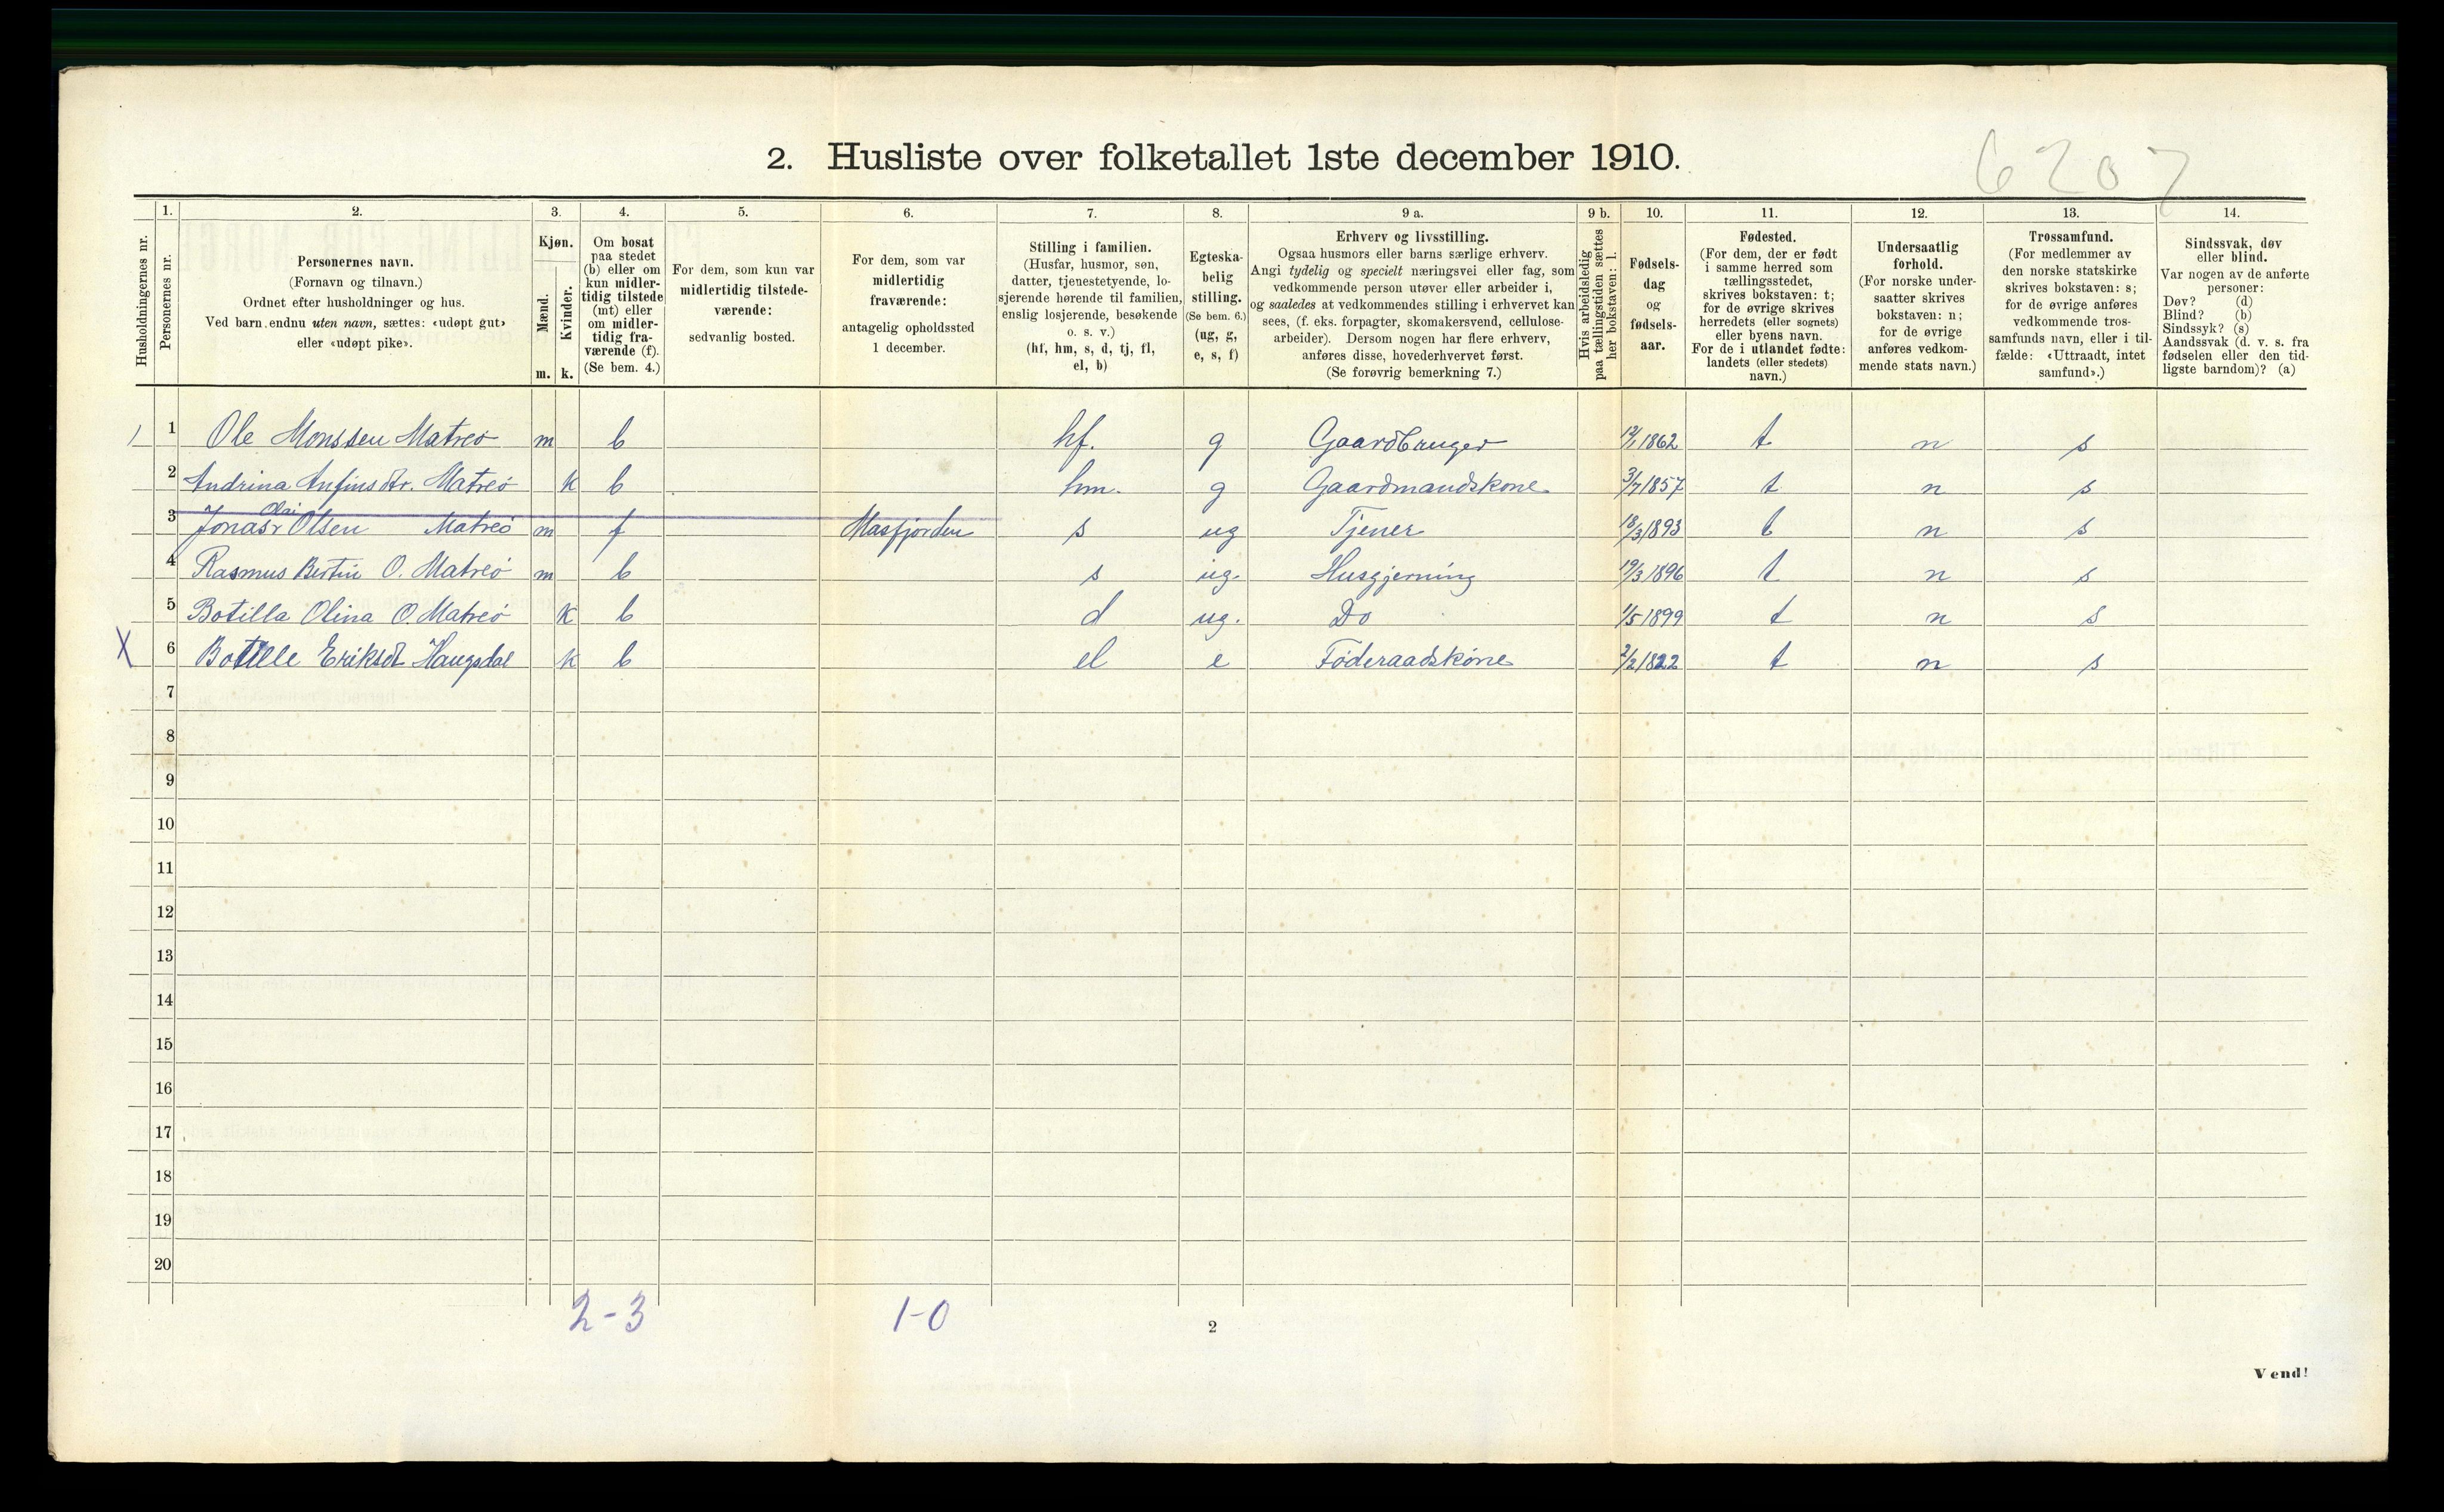 6207
2. Husliste over folketallet 1ste december 1910.
Husholdningernes nr.
1. Personernes nr.
2. Personernes navn. (Fornavn og tilnavn.) Ordnet efter husholdninger og hus. Ved barn endnu uten navn, sættes: «udøpt gut» eller «udøpt pike».
3. Kjøn. Mænd. m. Kvinder. k.
4. Om bosat paa stedet (b) eller om kun midlertidig tilstede (mt) eller om midlertidig fraværende (f). (Se bem. 4.)
5. For dem, som kun var midlertidig tilstedeværende: sedvanlig bosted.
6. For dem, som var midlertidig fraværende: antagelig opholdssted 1 december.
7. Stilling i familien. (Husfar, husmor, søn, datter, tjenestetyende, losjerende hørende til familien, enslig losjerende, besøkende o. s. v.) (hf, hm, s, d, tj, fl, el, b)
8. Egteskabelig stilling. (Se bem. 6.) (ug, g, e, s, f)
9 a. Erhverv og livsstilling. Ogsaa husmors eller barns særlige erhverv. Angi tydelig og specielt næringsvei eller fag, som vedkommende person utøver eller arbeider i, og saaledes at vedkommendes stilling i erhvervet kan sees, (f. eks. forpagter, skomakersvend, cellulosearbeider). Dersom nogen har flere erhverv, anføres disse, hovederhvervet først. (Se forøvrig bemerkning 7.)
9 b. Hvis arbeidsledig paa tællingstiden sættes her bokstaven: l.
10. Fødselsdag og fødselsaar.
11. Fødested. (For dem, der er født i samme herred som tællingsstedet, skrives bokstaven: t; for de øvrige skrives herredets (eller sognets) eller byens navn. For de i utlandet fødte: landets (eller stedets) navn.)
12. Undersaatlig forhold. (For norske undersaatter skrives bokstaven: n; for de øvrige anføres vedkommende stats navn.)
13. Trossamfund. (For medlemmer av den norske statskirke skrives bokstaven: s; for de øvrige anføres vedkommende trossamfunds navn, eller i tilfælde: «Uttraadt, intet samfund».)
14. Sindssvak, døv eller blind. Var nogen av de anførte personer: Døv? (d) Blind? (b) Sindssyk? (s) Aandssvak (d. v. s. fra fødselen eller den tidligste barndom)? (a)
1 1 Ole Monssen Matreó m b hf. g Gaardbruger 12/1 1862 t n s
2 Andrina Anfinsdtr. Matreó k b hm. g Gaardmandskone 3/7 1857 t n s
3 Jonas Olai Olsen Matreó m f Masfjorden s ug Tjener 18/3 1893 t n s
4 Rasmus Bertin O. Matreó m b s ug. Husgjerning 19/3 1896 t n s
5 Botilla Olina O. Matreó k b d ug. Do 1/5 1899 t n s
X 6 Botille Eriksdt Haugsdal k b el e Føderaadskone 2/2 1822 t n s
7
8
9
10
11
12
13
14
15
16
17
18
19
20
2-3 1-0
2
Vend!